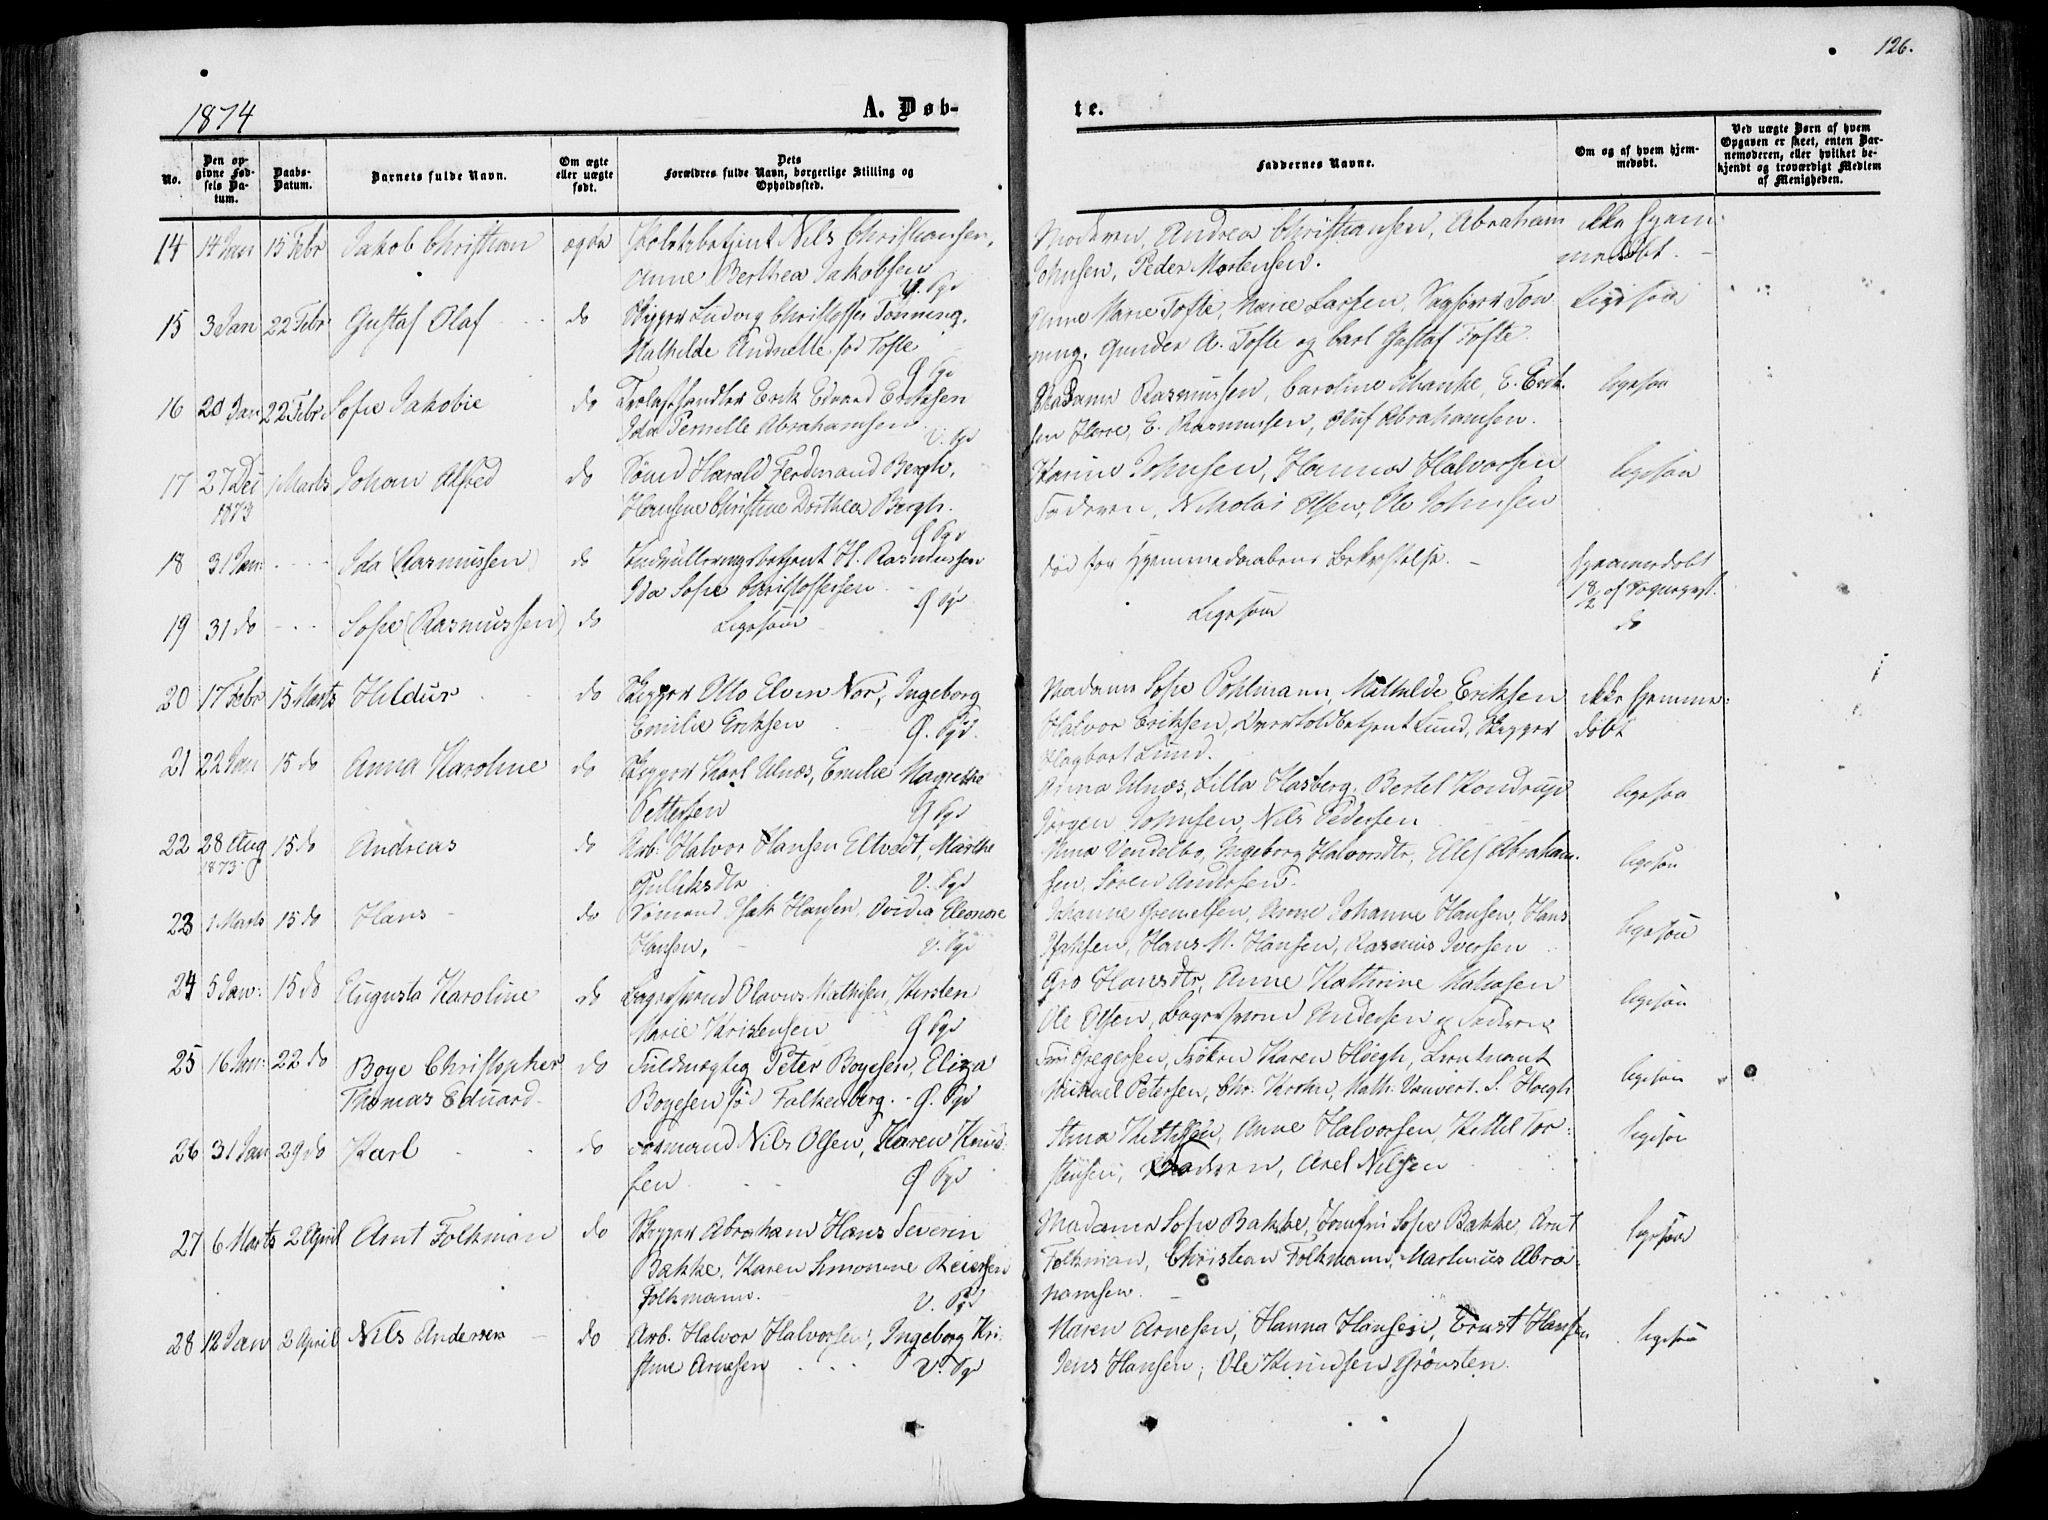 126.
1874
A. Døb-
te.
No.
Den op-
givne Fød-
sels Da-
tum.
Daabs-
Datum.
Barnets fulde Navn.
Om ægte
eller uægte
født.
Dets
Forældres fulde Navn, borgerlige Stilling og
Opholdssted.
Faddernes Navne.
Om og af hvem hjem-
medøbt.
Ved uægte Børn af hvem
Opgaven er skeet, enten Bar-
nemoderen, eller hvilket be-
kjendt og troværdigt Medlem
af Menigheden.
14 14 Jan 15 Febr Jakob Christian ægte Nils Christiansen,
Anne Berthea Jakobsen V. Pgr
Moderen, Andrea Christiansen, Abraham
Johnsen, Peder Mortensen.
ikke hjem-
medøbt.
15 3 Jan 22 Febr Gustaf Olaf do Skipper Ludvig Christoffer Tønning,
Mathilde Andnette fød Tofte Ø Pgr
Anne Marie Tofte, Marie Larsen, Tøn
ning, Gunder A. Tofte og Carl Gustaf Tofte.
ligesaa
16 20 Jan 22 Febr Sofie Jakobie do Erik Edvard Eriksen
Ida Pernille Abrahamsen V. Pgr
Madame Rasmussen, Caroline Schanke, E. Erik-
sen E. Rasmussen, Oluf Abrahamsen.
ligesaa
17 27 Dec 1873 1 Marts Johan Alfred do Sømd Harald Ferdinand Bergh,
Hansine Christine Dorthea Bergh. Ø Pgr
Karine Johnsen, Hanna Halvorsen
Faderen, Nikolai Olsen, Ole Johnsen
ligesaa
18 31 Jan: Ida (Rasmussen) do Indrulleringsbetjent H. Rasmussen
Ida Sofie Christoffersen Ø Pgr
død før Hjemmedaabens Bekræftelse.
hjemmedøbt
18/2 af
19 31 do Sofie (Rasmussen) do Ligesom
Ligesom
do
20 17 Febr 15 Marts Hildur do Skipper Otto Elven Nor, Ingeborg
Emilie Eriksen Ø. Pgr.
Madame Sofie Pohlmann, Mathilde Eriksen
Halvor Eriksen, Lund, Skipper
Hagbart Lund.
ikke hjemme-
døbt
21 22 Jan 15 do Anna Karoline do Skipper Karl Ulnæs, Emilie Magrethe
Pettersen Ø Pgr
Anna Ulnæs, Lilla Hasberg, Bertel Kondrup
Jørgen Johnsen, Nils Pedersen
ligesaa
22 28 Aug 1873 15 do Andreas do Arb. Halvor Hansen Eltvedt, Marthe
Gulliksdtr V. Pgr
Anna Vendelbo, Ingeborg Halvorsdtr, Alef Abraham-
sen, Søren Andersen.
ligesaa
23 1 Marts 15 do Hans do Sømand Isak Hansen, Ovidia Eleonore
Hansen, V. Pgr
Johanne Gremelsen, Anne Johanne Hansen, Hans
Isaksen, Hans M. Hansen, Rasmus Iversen
ligesaa
24 5 Jan: 15 do Augusta Karoline do Bagersvend Olavus Mathisen, Kirsten
Marie Kristensen Ø Pgr
Gro Hansdtr, Anne Kathrine
Ole Olsen, Bagersvend Andersen og Faderen
ligesaa
25 16 Jan: 22 do Boye Christopher
Thomas Eduard do Fuldmægtig Peter Boyesen, Eliza
Boyesen fød Falkenberg. Ø. Pgr
Gregersen, Frøken Karen Høegh, Lieutnant
Michael Petersen, Chr. Krohn, Math. Vauvert, S. Høegh
ligesaa
26 31 Jan 29 do Karl do Sømand Nils Olsen, Karen Knud-
sen Ø Pgr
Anna Anne Halvorsen, Kittil Tor-
stensen, Axel Nilsen
ligesaa
27 6 Marts 2 April Arnt Folkman do Skipper Abraham Hans Severin
Bakke, Karen Simonine Reiersen
Folkmann. V. Pgr
Madame Sofie Bakke, Jomfru Sofie Bakke, Arnt
Folkman, Christian Folkmann, Martinus Abra-
hamsen.
ligesaa
28 12 Jan 2 April Nils Andersen do Arb. Halvor Halvorsen, Ingeborg Kri-
stine Arnesen V. Pgr
Maren Arnesen, Hanna Hansen, Ernst Hansen
Jens Hansen, Ole Knudsen Brønsten.
ligesaa